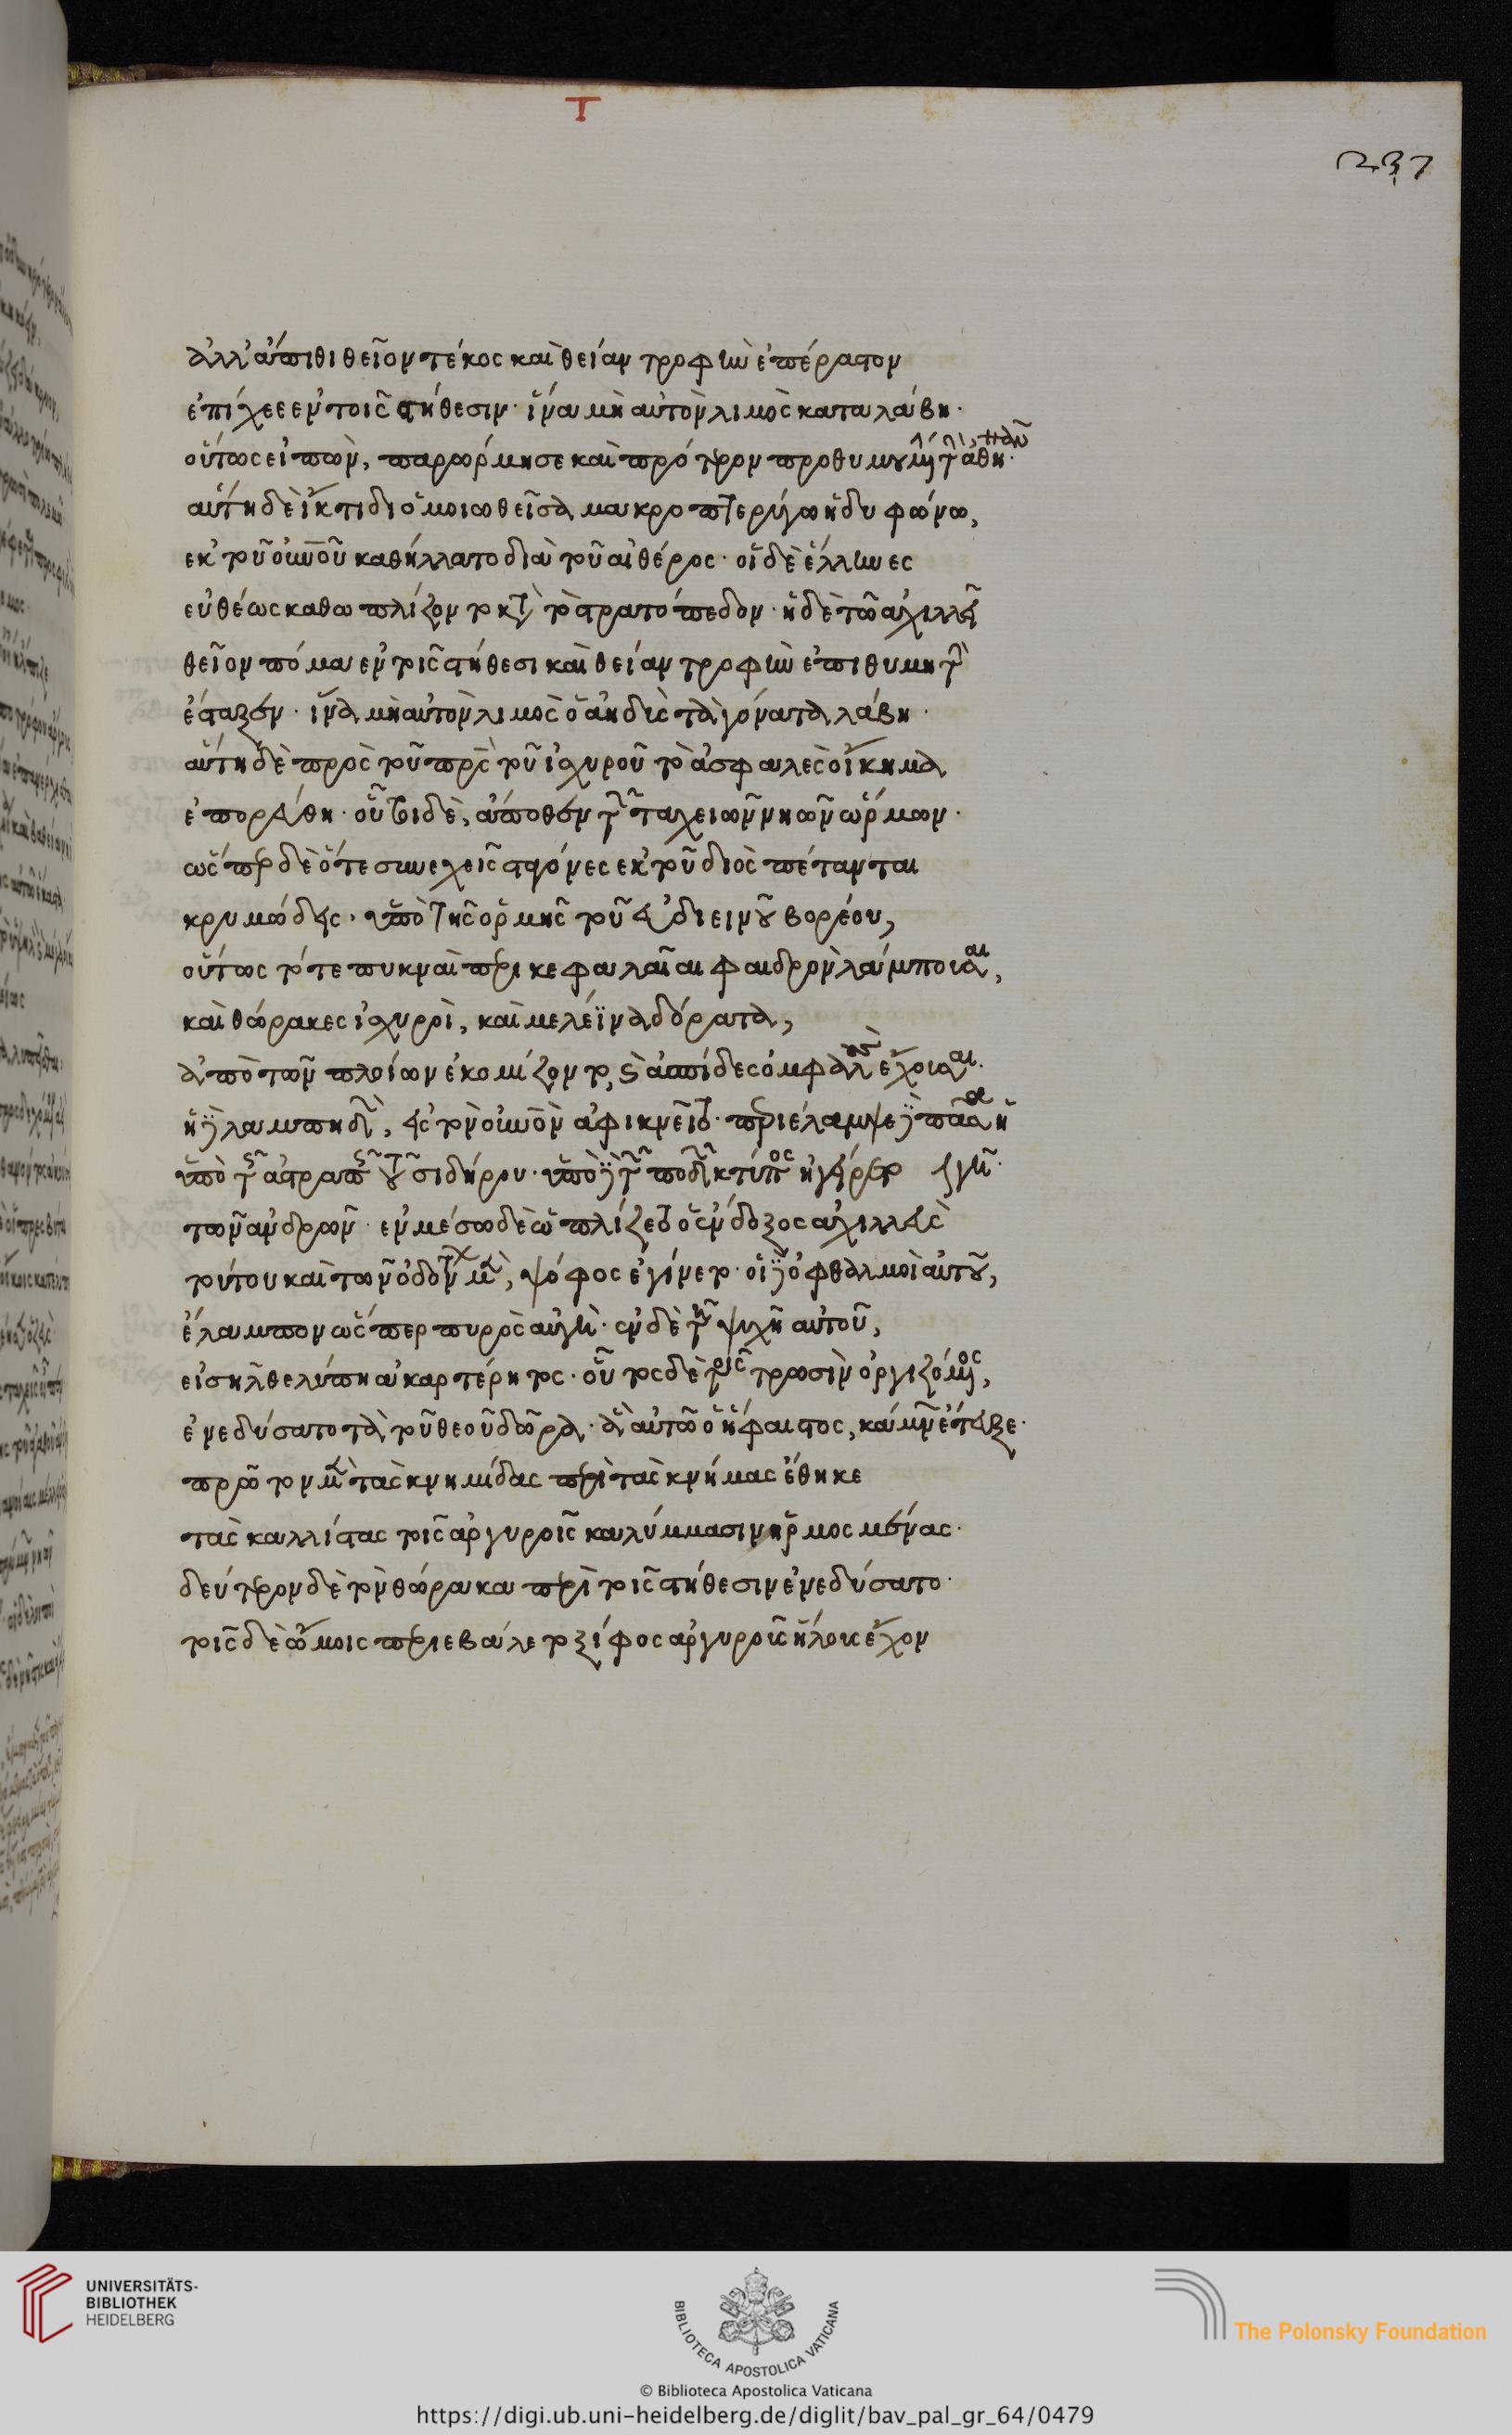 T
237
ἀλλ' ἄπιθι θεῖον τέκος καὶ θείαν τροφὴν ἐπέραστον
ἐπίχεε ἐν τοῖς στήθεσιν· ἵνα μὴ αὐτὸν λιμὸς καταλάβη·
οὕτως εἰπὼν, παρώρμησε καὶ πρότερον προθυμουμένην τὴν ἀθηνᾶν·
αὕτη δὲ ἴκτιδι ὁμοιωθεῖσα μακροπτερύγω ἡδυφώνω,
ἐκ τοῦ οὐνοῦ καθήλλατο διὰ τοῦ αἰθέρος· οἱ δὲ ἕλληνες
εὐθέως καθωπλίζοντο κατὰ τὸ στρατόπεδον· ἡ δὲ τῶ ἀχιλλεῖ
θεῖον πόμα ἐν τοῖς στήθεσι καὶ θείαν τροφὴν ἐπιθυμητὴν
ἔσταξεν· ἵνα μὴ αὐτὸν λιμὸς ὁ ἀηδὴς τὰ γόνατα λάβη·
αὕτη δὲ πρὸς τοῦ πρὸς τοῦ ἰσχυροῦ τὸ ἀσφαλὲς οἴκημα
ἐπορεύθη· οὗτοι δὲ, ἄποθεν τῶν ταχειῶν νηῶν ὥρμων·
ὥσπερ δὲ ὅτε συνεχεῖς σταγόνες ἐκ τοῦ διὸς πέτανται
κρυμώδεις· ὑπὸ τῆς ὁρμῆς τοῦ εὐδιεινοῦ βορέου,
οὕτως τότε πυκναὶ περικεφαλαῖαι φαιδρὸν λάμπουσαι,
καὶ θώρακες ἰσχυροὶ, καὶ μελέϊνα δόρατα,
ἀπὸ τῶν πλοίων ἐκομίζοντο, καὶ ἀσπίδες ὀμφαλοὺς ἔχουσαι·
ἡ δὲ λαμπηδὼν, εἰς τὸν οὐνὸν ἀφικνεῖτο· περιέλαμψε δὲ πᾶσα ἡ γῆ·
ὑπὸ τῆς ἀστραπῆς τοῦ σιδήρου· ὑπὸ δὲ τῶν ποδῶν κτύπος ἠγείρετο
τῶν ἀνδρῶν· ἐν μέσω δὲ ὡπλίζετο ὁ ἔνδοξος ἀχιλλεὺς
τούτου καὶ τῶν ὀδόντων μὲν, ψόφος ἐγίνετο· οἱ δὲ ὀφθαλμοὶ αὐτοῦ,
ἔλαμπον ὥσπερ πυρὸς αὐγὴ· ἐν δὲ τῆ ψυχῆ αὐτοῦ,
εἰσῆλθε λύπη ἀκαρτέρητος· οὗτος δὲ τοῖς τρωσὶν ὀργιζόμενος,
ἐνεδύσατο τὰ τοῦ θεοῦ δῶρα· ἃ αὐτῶ ὁ ἥφαιστος, κάμνων ἔτευξε·
πρῶτον μὲν τὰς κνημίδας περὶ τὰς κνήμας ἔθηκε
τὰς καλλίστας τοῖς ἀργυροῖς καλύμμασιν ἡρμοσμένας·
δεύτερον δὲ τὸν θώρακα περὶ τοῖς στήθεσιν ἐνεδύσατο·
τοῖς δὲ ὤμοις περιεβάλετο ξίφος ἀργυροῖς ἥλοις ἔχον
UNIVERSITÄTS-
BIBLIOTHEK
HEIDELBERG
BIBLIOTECA APOSTOLICA VATICANA
The Polonsky Foundation
© Biblioteca Apostolica Vaticana
https://digi.ub.uni-heidelberg.de/diglit/bav_pal_gr_64/0479